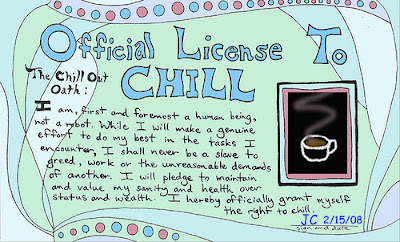 Official License To
CHILL
The Chill Out
Oath:
I am, first and foremost a human being,
not a robot. While I will make a genuine
effort to do my best in the tasks I
encounter, I shall never be a slave to
greed, work or the unreasonable demands
of another. I will pledge to maintain
and value my sanity and health over
status and wealth. I hereby officially grant myself
the right to chill.
JC 2/15/08
sign and date